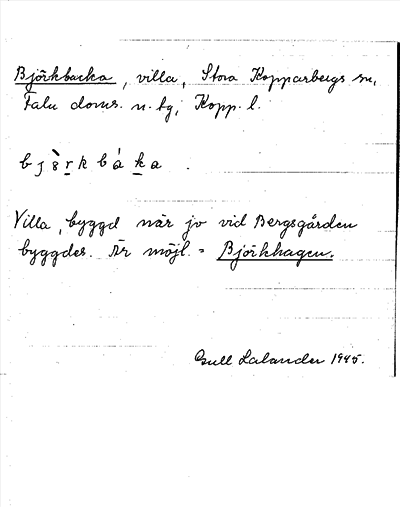 Björkbacka, villa, Stora Kopparbergs sn,
Falu doms. n. tg, Kopp. l.
björkbaka.
Villa, byggd när jv vid Bergsgården
byggdes. Är möjl. = Björkhagen.
Gull Lalander 1945.